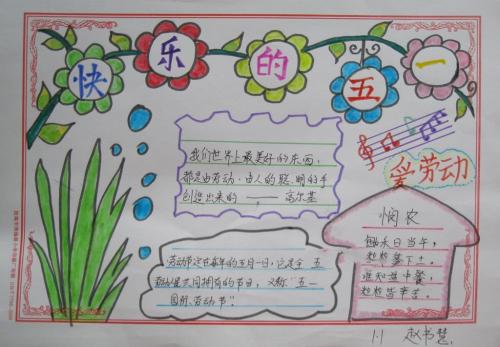 快乐的五一
爱劳动
我们世界上最美好的东西,
都是由劳动、由人的聪明的手
创造出来的。——高尔基
悯农
锄禾日当午,
粒粒禾下土。
谁知盘中餐,
粒粒皆辛苦。
劳动节定在每年的五月一日,它是全
劳动者共同拥有的节日,又称"五一
国际劳动节"。
1.1 赵书慧